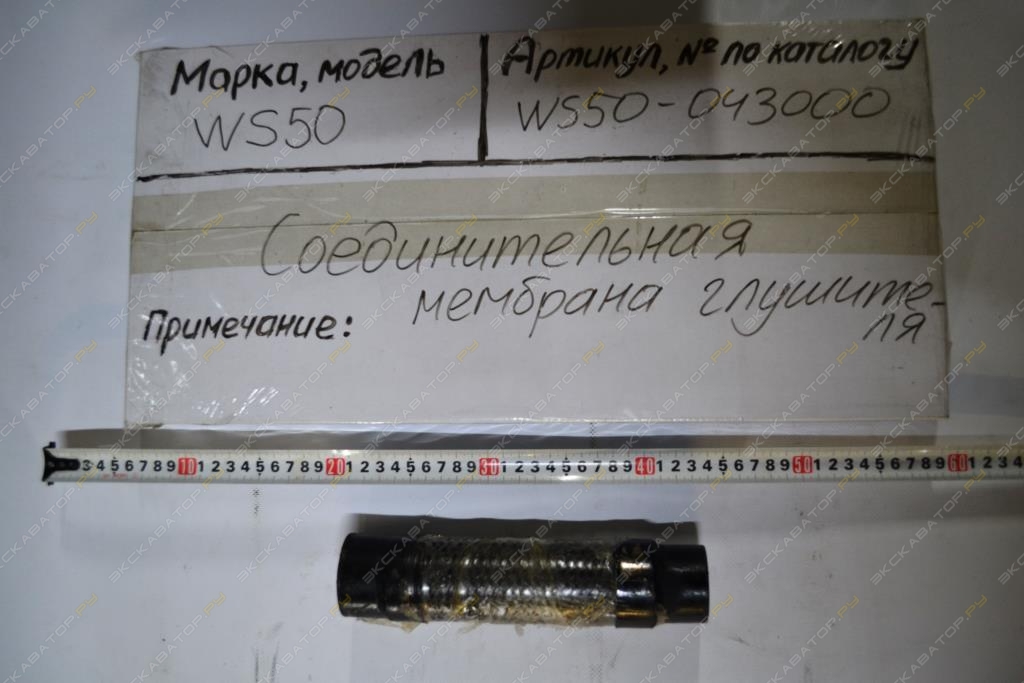 Марка, модель
WS50
Артикул, № по каталогу
WS50-043000
Соединительная
мембрана глушите-
ля
Примечание:
3 4 5 6 7 8 9 10 1 2 3 4 5 6 7 8 9 20 1 2 3 4 5 6 7 8 9 30 1 2 3 4 5 6 7 8 9 40 1 2 3 4 5 6 7 8 9 50 1 2 3 4 5 6 7 8 9 60 1 2 3 4
ЭКСКАВАТОР.РУ